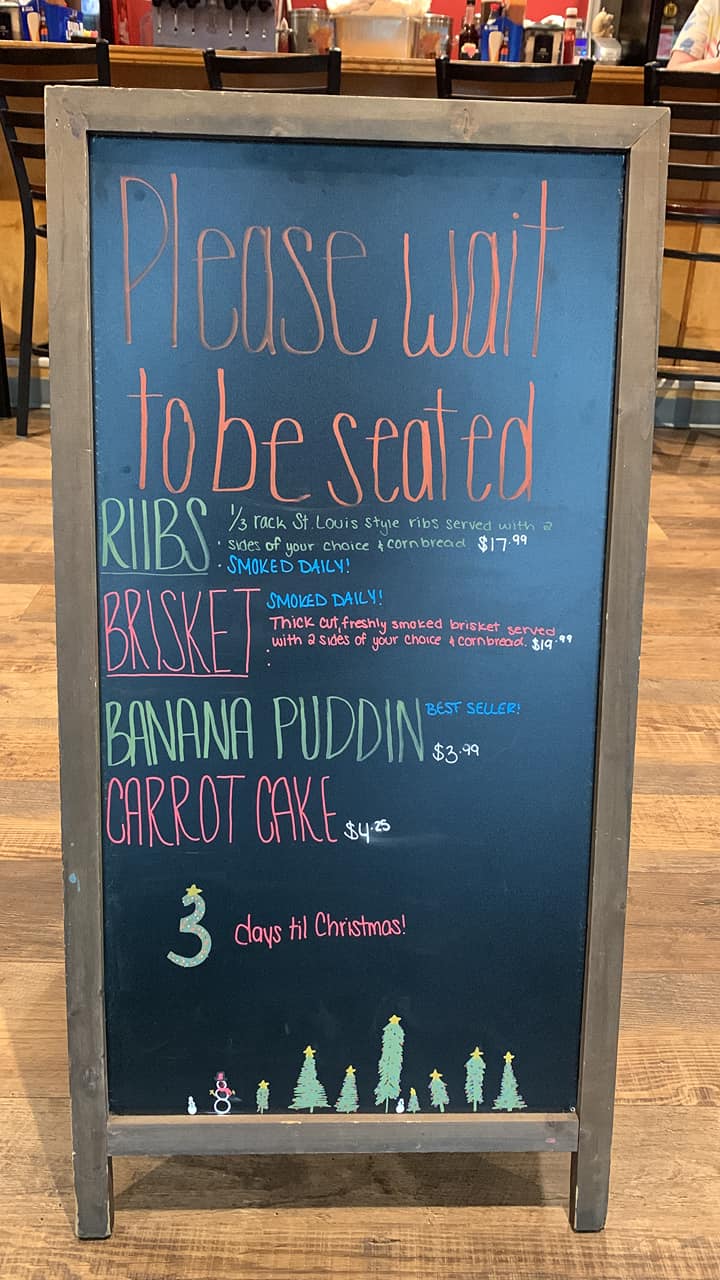 Please wait
to be seated
RIIBS
1/3 rack St. Louis style ribs served with 2
sides of your choice & cornbread $17.99
SMOKED DAILY!
BRISKET
SMOKED DAILY!
Thick cut, freshly smoked brisket served
with 2 sides of your choice & cornbread. $19.99
BANANA PUDDIN
BEST SELLER!
$3.99
CARROT CAKE $4.25
3 days til Christmas!